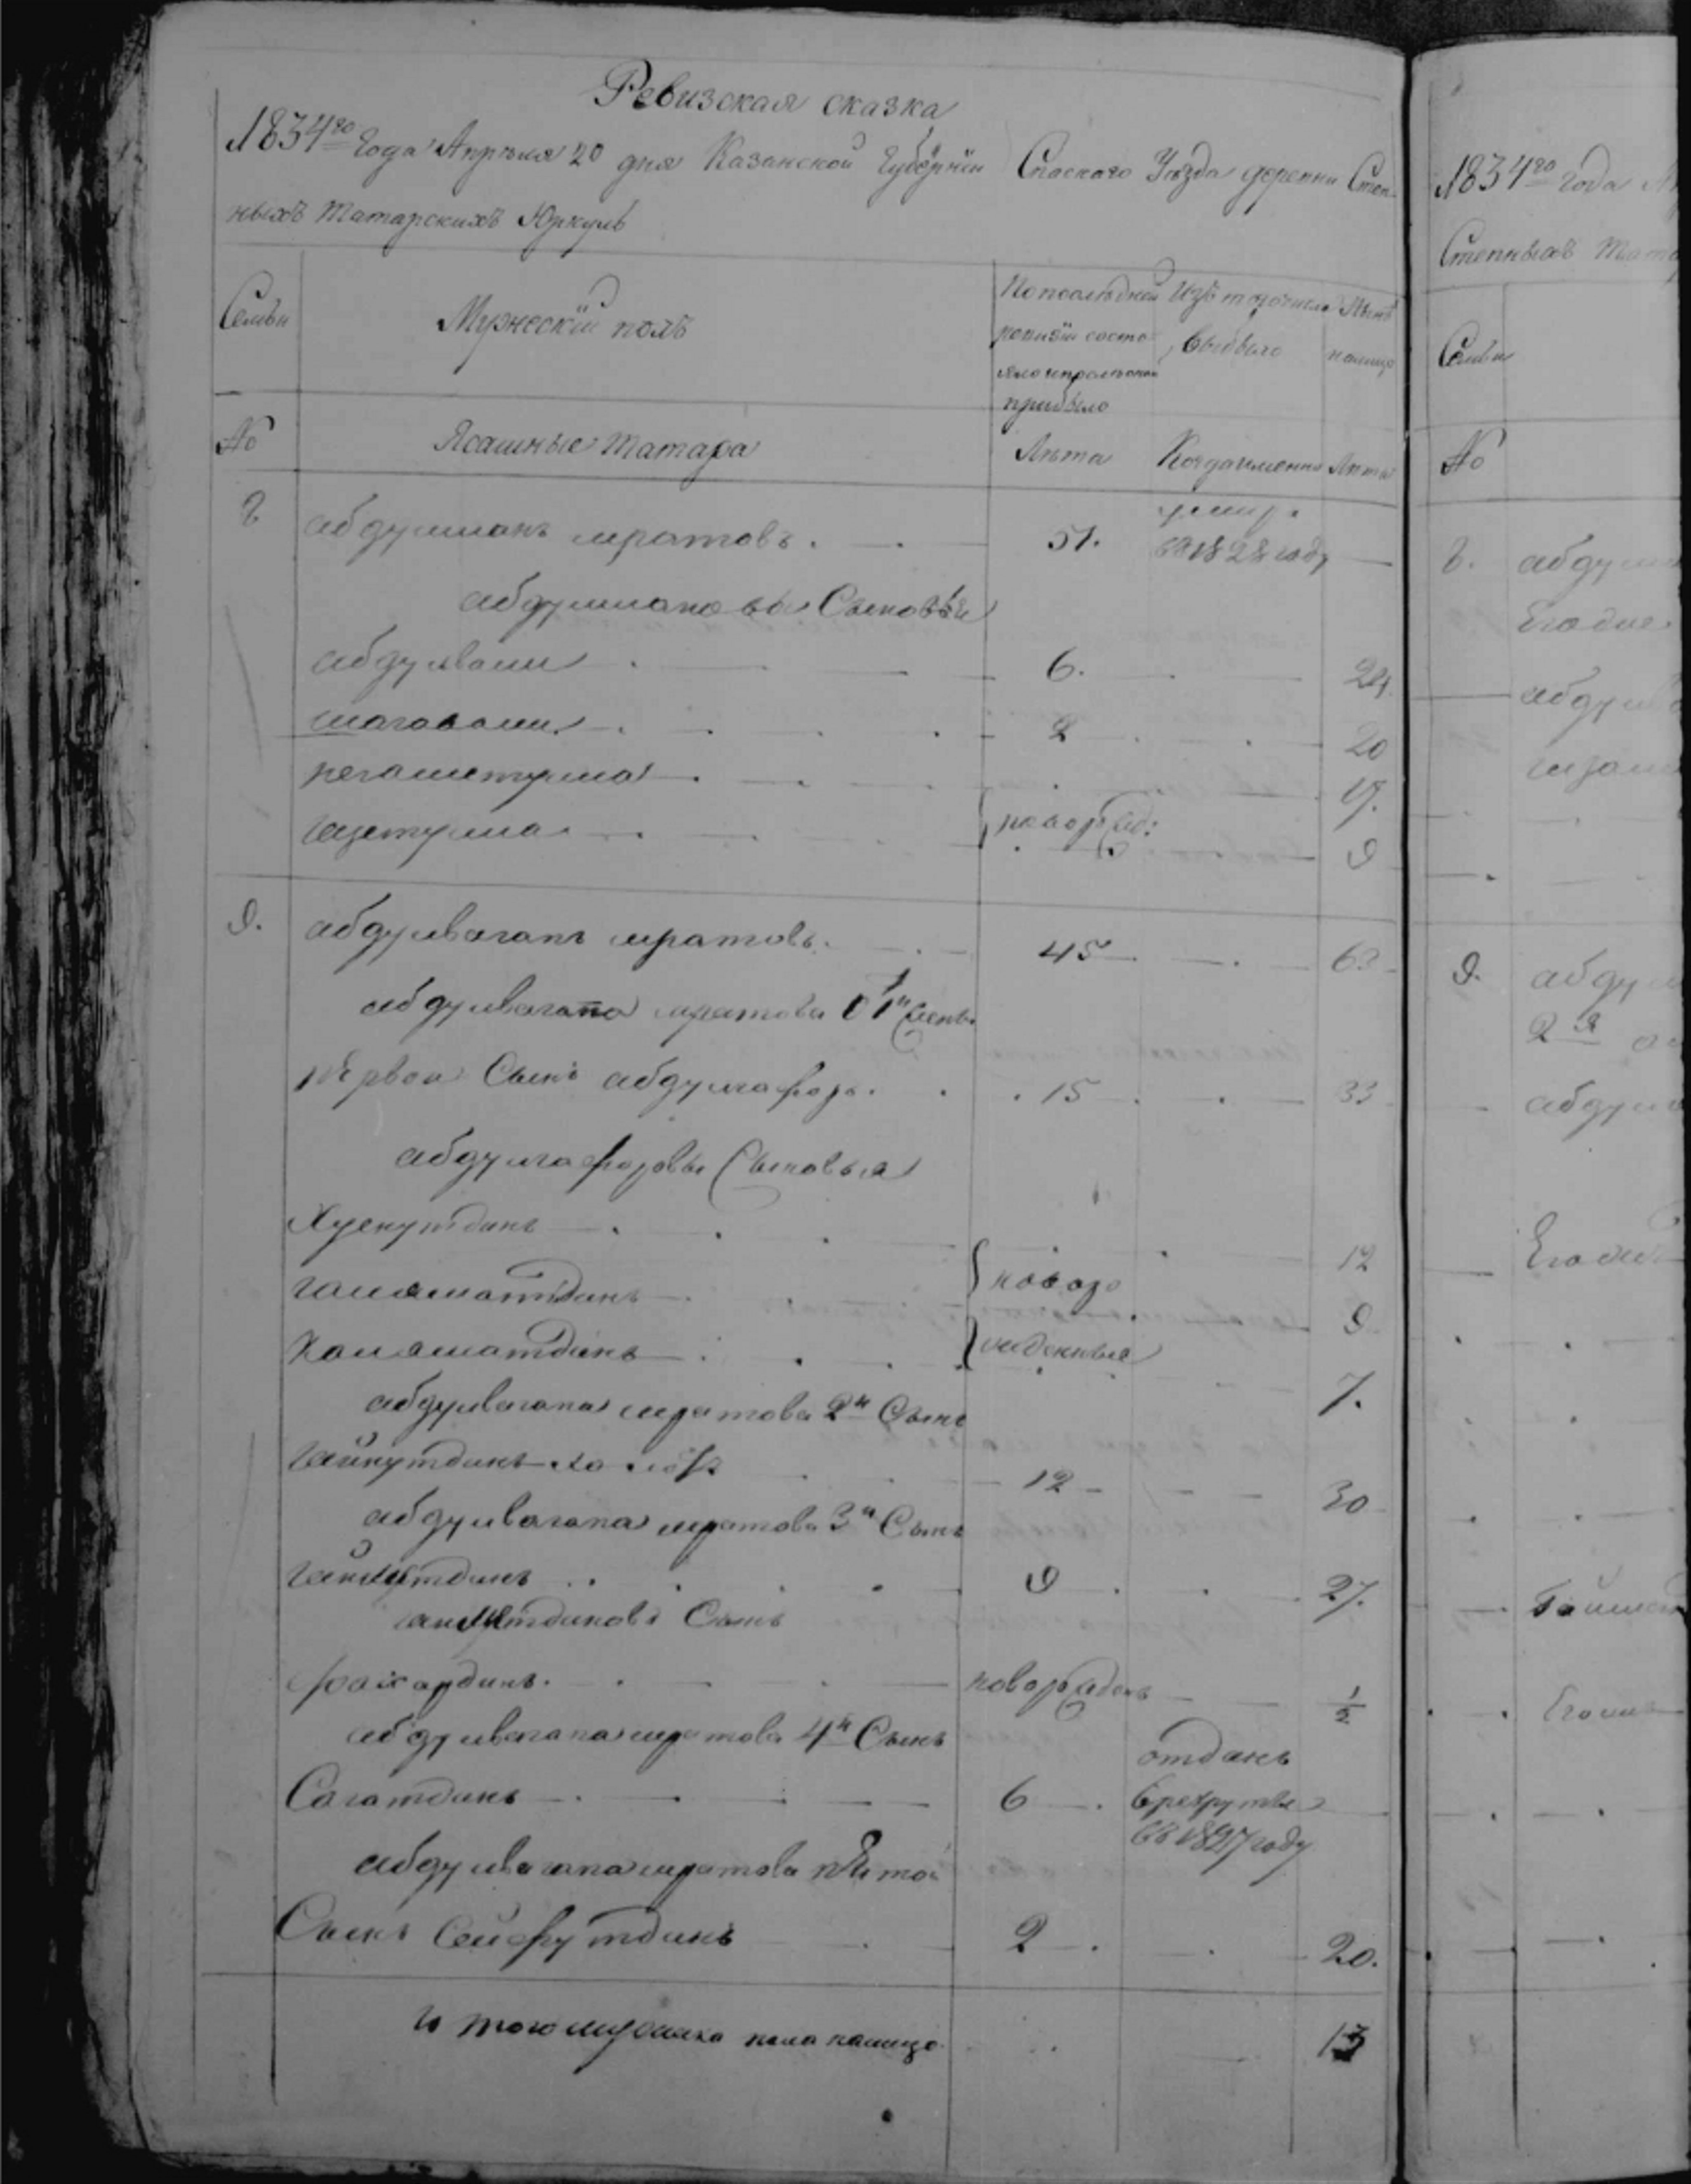 Ревизская сказка
1834го Года Апреля 20 дня Казанской Губернїи Спаскаго Уѣзда деревни Степ-
ныхъ Татарскихъ Юркуль
Семьи
Мужескїй полъ
По последней ревизїи состояло и после оной прибыло
Изъ того числа выбыло
Нынѣ налицо
№
Ясашные татара
Лѣта
Когда именно
Лѣта
8 абдулманъ мратовъ 51. умир. въ 1828 году
абдулмановы Сыновья
абдулвали 6. 24
шагавали 2 20
негаметулла 17.
новорожд: 9
9. абдулваганъ мратовъ 45 63
абдулвагапа мратова 1й Сынъ
первои Сынъ абдулгафаръ 15 33
абдулгафаровы Сыновья
Хуснутдинъ 12
галяматдинъ новоро 9
Камаматдинъ жденные 7.
абдулвагапа мратова 2й Сынъ
гайнутдинъ 12 30
абдулвагапа мратова 3й Сынъ
9 27.
Сынъ
фахардинъ новорожденъ 1/2
абдулвагапа мратова 4й Сынъ
Сагатдинъ 6 отданъ в рекруты въ 1827 году
абдулвагапа мратова пятой
Сынъ Сейфутдинъ 2 20.
Итого мужеска пола налицо 13
1834го Года
Степныхъ
Семьи
№
8.
9.
2я